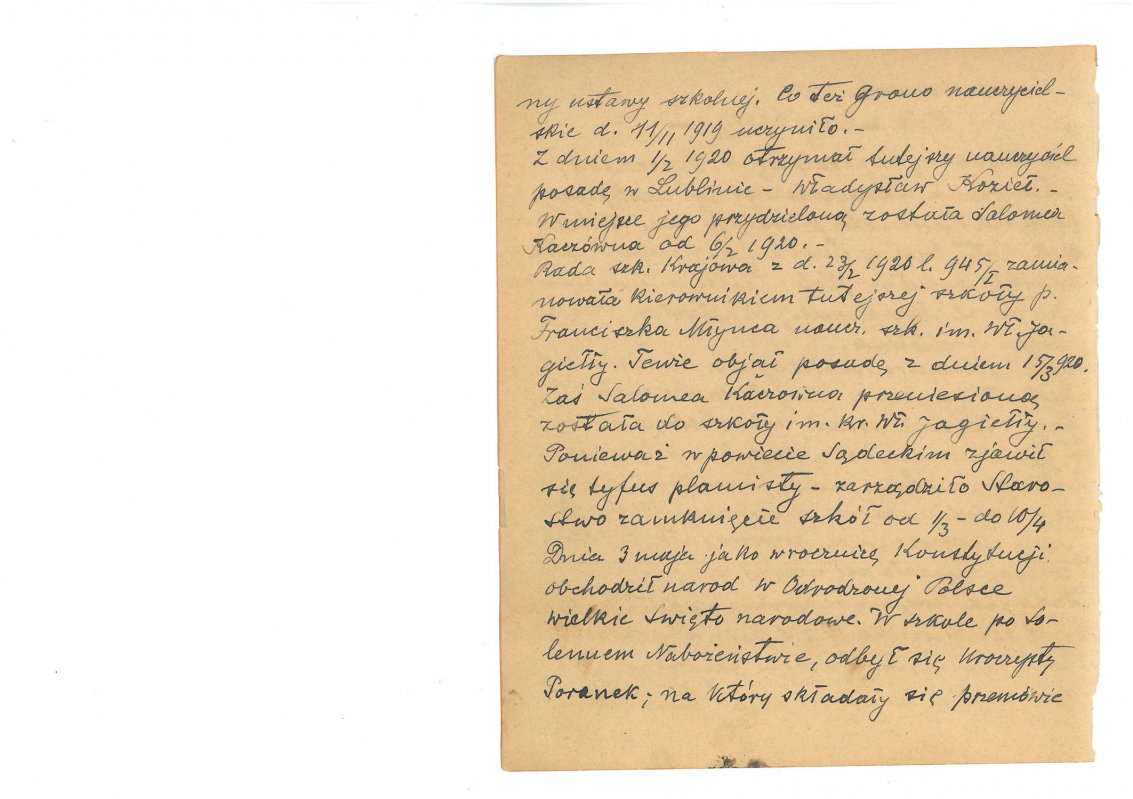 ny ustawy szkolnej. Co też Grono nauczyciel-
skie d. 11/11 1919 uczyniło.-
Z dniem 1/2 1920 otrzymał tutejszy nauczyciel
posadę w Lublinie - Władysław Kozieł.-
W miejsce jego przydzieloną została Salomea
Kaczówna od 6/2 1920.-
Rada szk. Krajowa z d. 23/2 1920 l. 945/I zamia-
nowała kierownikiem tutejszej szkoły p.
Franciszka Młynca naucz. szk. im. Wł. Ja-
giełły. Tenże objął posadę z dniem 15/3 920.
Zaś Salomea Kaczowna przeniesioną
została do szkoły im. Kr. Wł. Jagiełły.-
Ponieważ w powiecie Sądeckim zjawił
się tyfus plamisty - zarządziło Staro-
stwo zamknięcie szkół od 1/3 - do 10/4
Dnia 3 maja jako w rocznicę Konstytucji
obchodził narod w Odrodzonej Polsce
wielkie Swięto narodowe. W szkole po So-
lennem Nabożeństwie, odbył się Uroczysty
Poranek; na który składały się przemówie